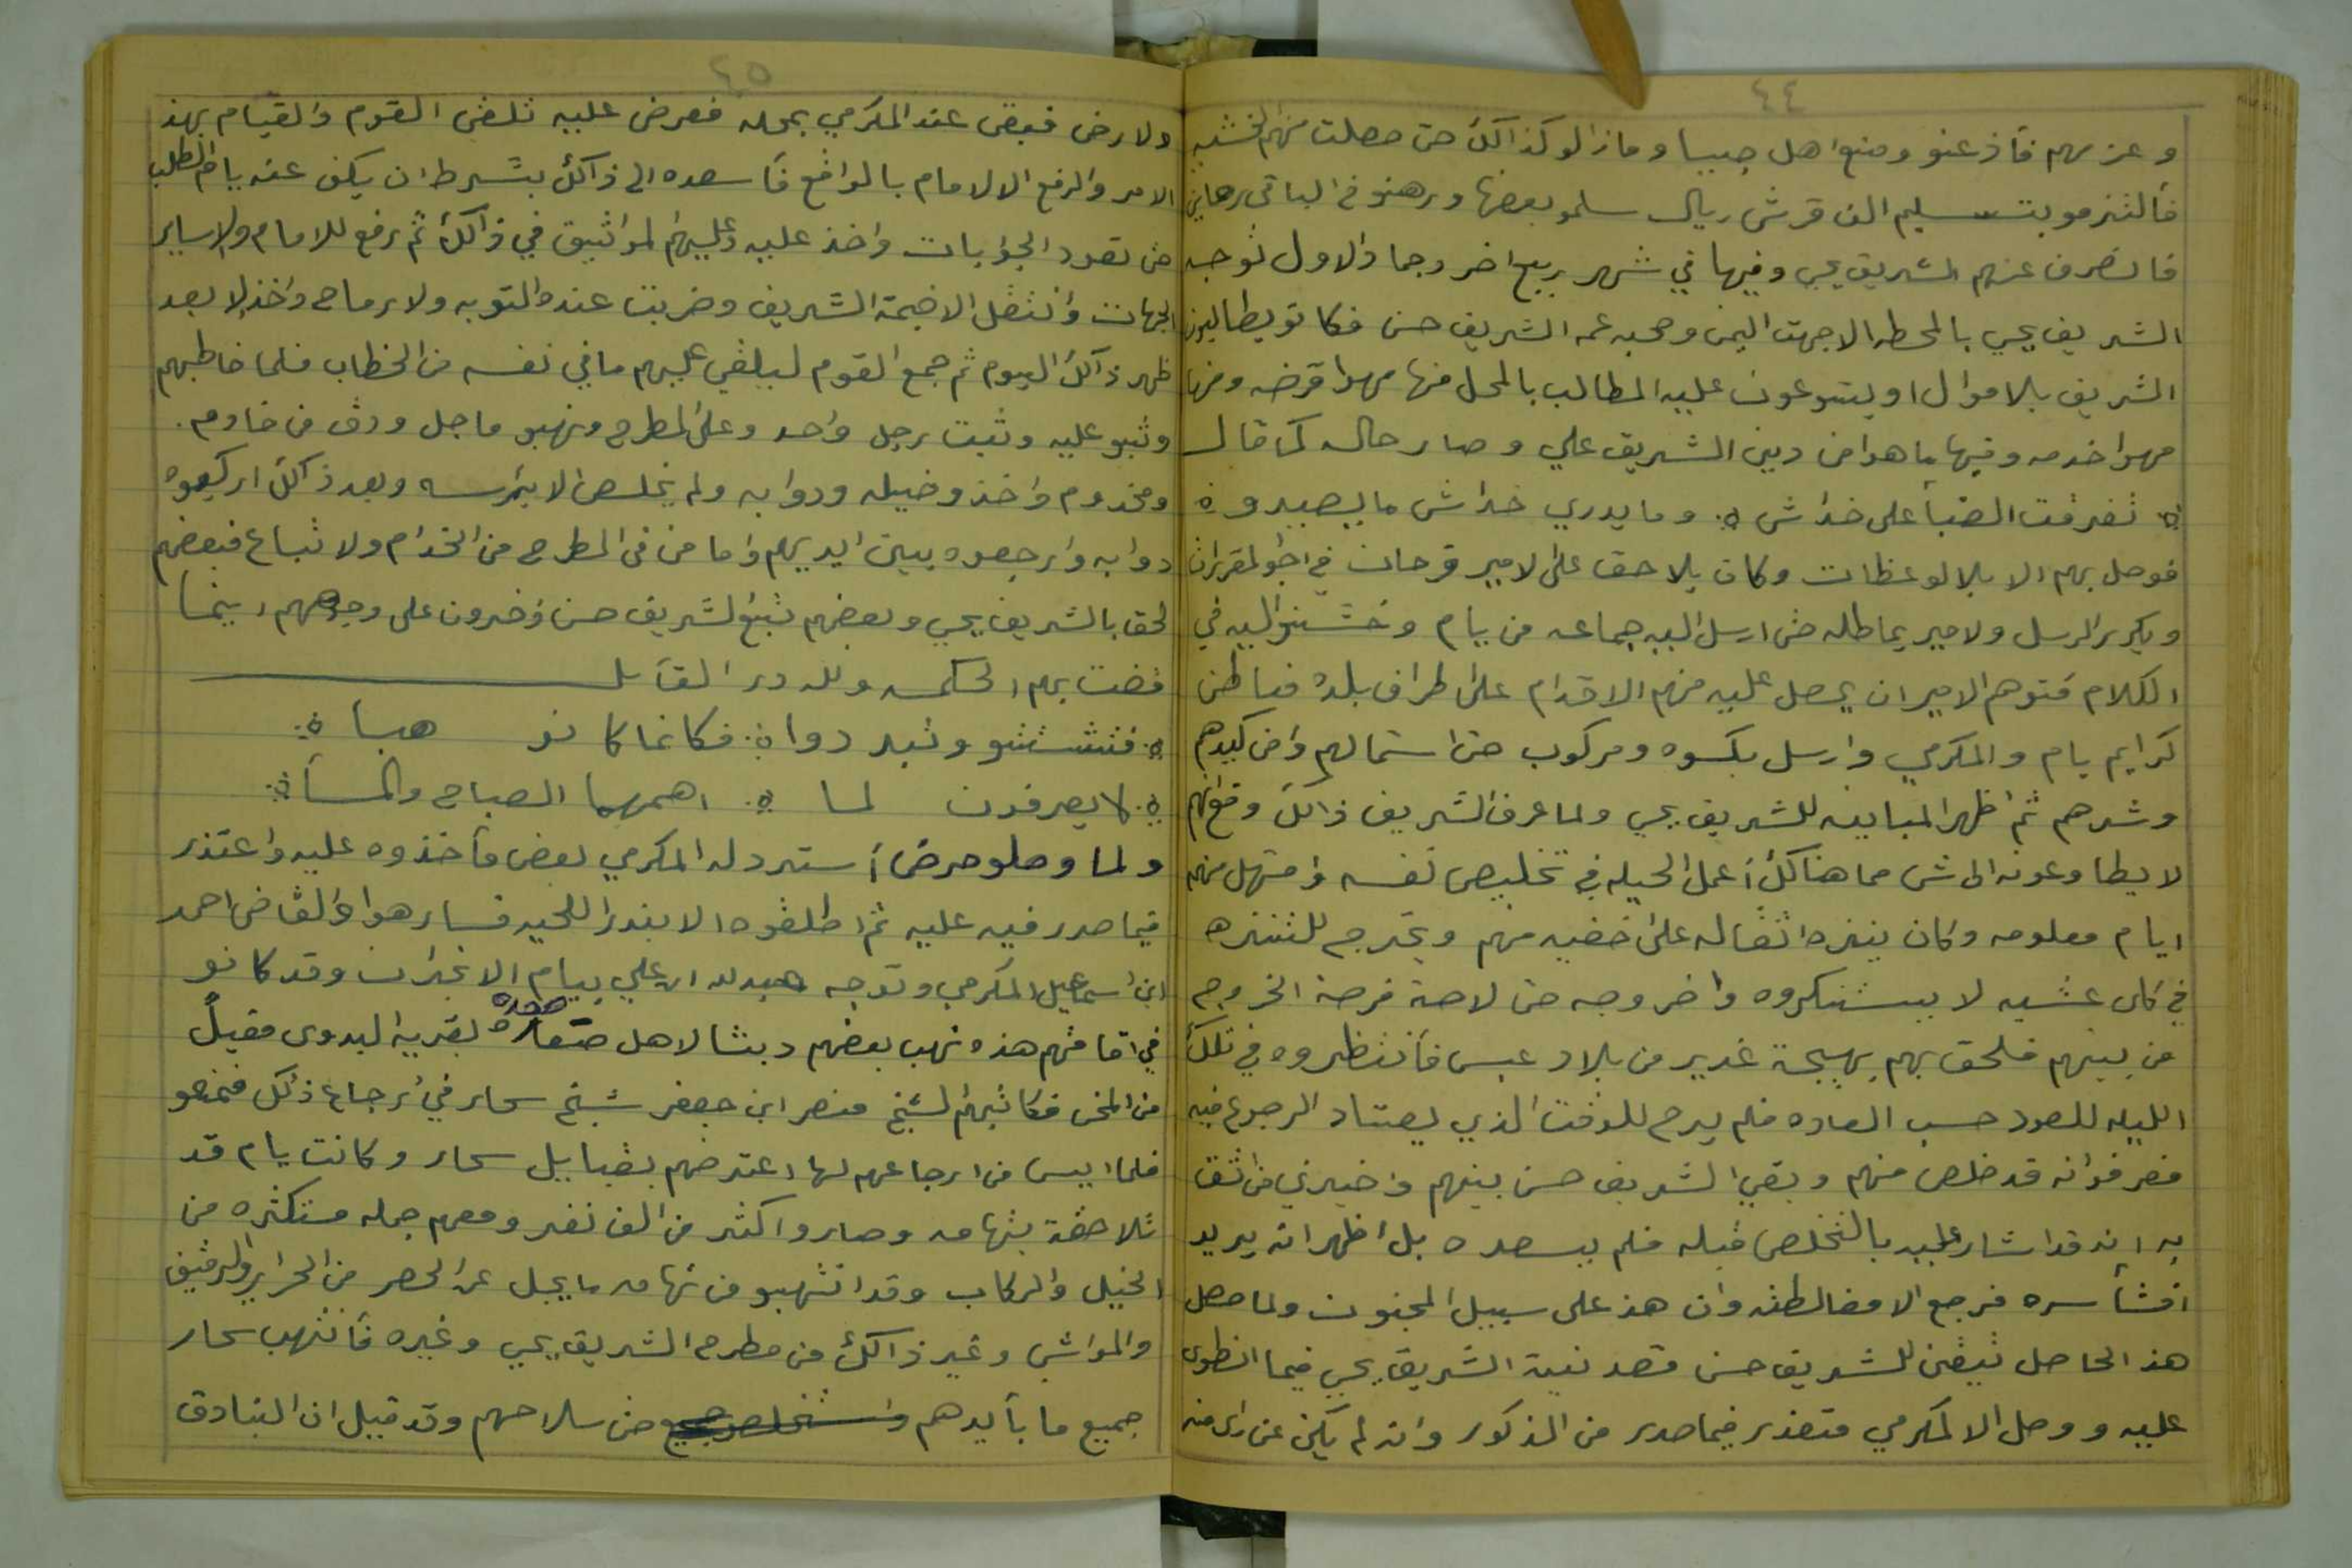 ٤٤
وعزمهم فأذعنو ومنع اهل جيبا وما زالو كذالك حتى حصلت منهم الخشيه
فألتزمو بتسليم الف قرش ريال سلمو بعضها ورهنو في الباقي رهاين
فانصرف عنهم الشريف يحي وفيها في شهر ربيع اخر وجما والاول توجه
الشريف يحي بالمحطه الا جهت اليمن وصحبه عمه الشريف حسن فكانو يطالبون
الشريف بالاموال اويتنوعون عليه المطالب بالمحل منها مهوا قرضه ومنها
مهوا خدمه وفيها ماهوا من دين الشريف علي وصار حاله كما قال
تفرقت الضبأ على خداش وما يدري خداش ما يصيد
فوصل بهم الا بلالوعظات وكان يلاحق على الامير قرحان في اجو المقررات
ويكرر الرسل ولامير يماطله حتى ارسل اليه جماعه من يام وخشنو اليه في
الكلام فتوهم الامير ان يحصل عليه منهم الاقدام على اطراف بلده فباطن
كرايم يام والمكرمي وارسل بكسوه ومركوب حتى استمالهم وامن كيدهم
وشرهم ثم اظهر المباينه للشريف يحي ولما عرف الشريف ذالك وقع انهم
لا يطاوعونه الى شي مما هنالك أعمل الحيله في تخليص نفسه وامتهل منهم
ايام معلومه وكان ينفرد اثقاله على خفيه منهم ويخرج للتنزه
في كل عشيه لا يستنكروه واخروجه حتى لاحة فرصة الخروج
من بينهم فلحق بهم بهيجة غدير من بلاد عبس فأنتظروه في تلك
الليله للعود حسب العاده فلم يرح للوقت الذي يعتاد الرجوع فيه
فعرفوانه قد خلص منهم وبقي الشريف حسن بينهم واخبرني من اثق
به انه قد اشار عليه بالتخلص قبله فلم يسعده بل أظهر انه يريد
افشأ سره فرجع الا مغالطته وان هذ على سبيل المجنون ولما حصل
هذ الحاصل تيقن للشريف حسن قصد نية الشريف يحي فيما انطوى
عليه ووصل الا المكرمي متعذر فيما صدر من المذكور وانه لم يكن عن راى منه
٤٥
ولارضى فبقى عند المكرمي بمحله فعرض عليه تلقى القوم والقيام بهذ
الامر والرفع الا لامام بالواقع فأسعده الى ذالك بشرط ان يكف عنه يام الطلب
حتى تعود الجوابات واخذ عليه وعليهم المواثيق في ذالك ثم رفع للامام ولا ساير
الجهات وانتقل الا خيمة الشريف وضربت عنده التوبه ولا رماح واخذ لا بعد
ظهر ذالك اليوم ثم جمع القوم ليلقي عليهم مافي نفسه من الخطاب فلما خاطبهم
وثبو عليه وثبت رجل واحد وعلى المطرح ونهبو ماجل ودق من خادم
ومخدوم واخذ وخيله ودوابه ولم يخلص الا بترسه وبعد ذالك اركبوه
دوابه وارجعوه بين ايديهم واما من في المطرح من الخدام ولا تباع فبعضهم
لحق بالشريف يحي وبعضهم تبع الشريف حسن واخرون على وجوههم اينما
قضت بهم الحكمه ولله در القآيل
فتشتتو وتبددوا فكانما كانو هبأ
لا يعرفون لما اهمهما الصباح والمسأ
ولما وصلو حرض أسترد له المكرمي بعض مأخذوه عليه واعتذر
فيما صدر فيه عليه ثم اطلقوه الا بندر اللحيه فسار هوا والقاضي احمد
ابن اسماعيل المكرمي وتوجه عبدلله ابن علي بيام الا نجران وقد كانو
في اقامتهم هذه نهب بعضهم دبشا لاهل صعده بقرية البدوى مقبلً
من المخى فكاتبهم الشيخ منصر ابن جعفر شيخ سحار في أرجاع ذلك فمنعو
فلما ايس من ارجاعهم لها اعترضهم بقبايل سحار وكانت يام قد
تلاحقة بتهامه وصارو اكثر من الف نفر ومعهم جمله مستكثره من
الخيل والركاب وقد انتهبو من تهامه ما يجل عن الحصر من الحراير والرقيق
والمواشي وغير ذالك من مطرح الشريف يحي وغيره فأنتهب سحار
جميع ما بأيدهم حتى سلاحهم وقد قيل ان البنادق